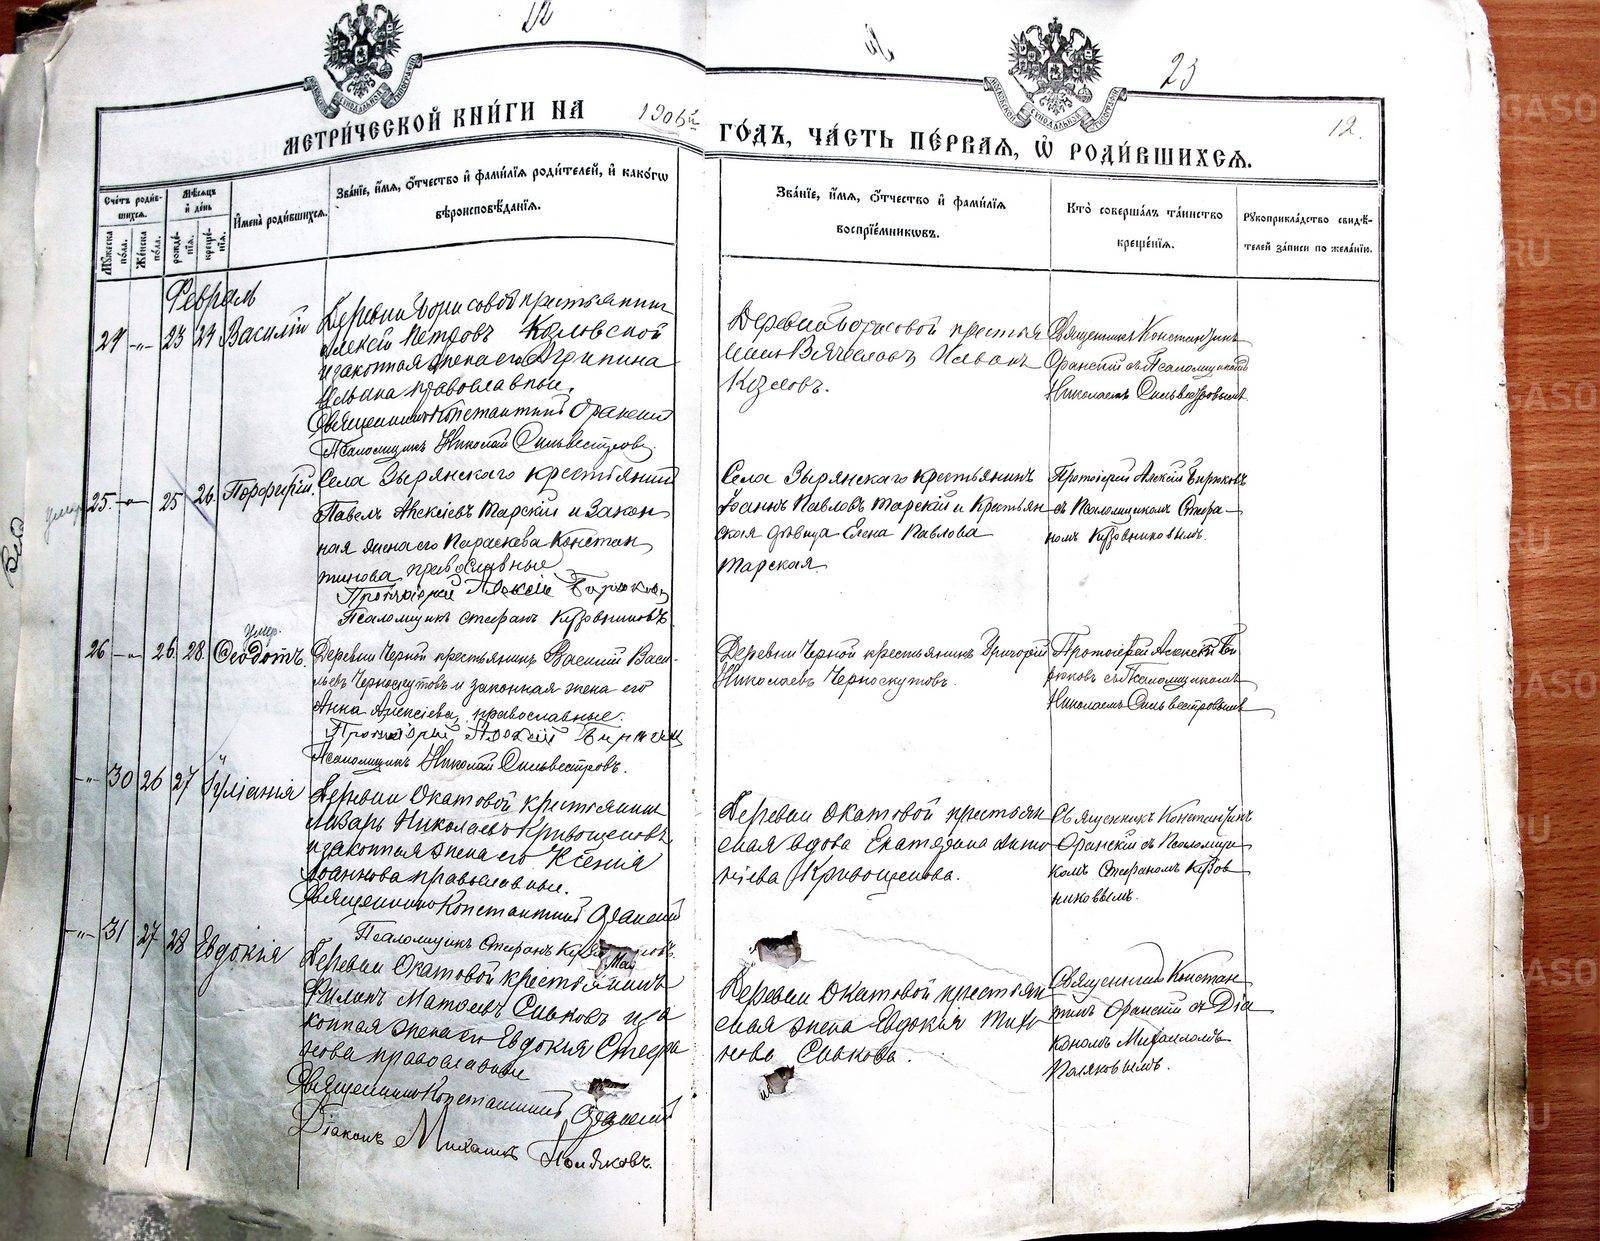 22
23
МЕТРИ́ЧЕСКОЙ КНИ́ГИ НА 1906й
ГО́ДЪ, ЧА́СТЬ ПЕ́РВАЯ, Ѡ РОДИ́ВШИХСЯ.
12.
Сче́тъ роди́в-
шихся.
Мѹ́жеска пола.
Же́нска пола.
Мѣ́сяцъ
и́ день
рожде́нїя.
креще́нїя.
И҆мена̀ роди́вшихся.
Зва́нїе, и҆́мя, ѻ҆́тчество и҆ фами́лїя роди́телей, и҆ како́гѡ
вѣроисповѣ́данїя.
Зва́нїе, и҆́мя, ѻ҆́тчество и҆ фами́лїя
воспрїе́мникѡвъ.
Кто̀ соверша́лъ та́инство
креще́нїя.
Рꙋкоприкла́дство свидѣ́-
телей за́писи по жела́нїю.
Февраль
24 -"- 23 24 Василій
Деревни Борисовой крестьянин
Алексій Петровъ Козловской
и законная жена его Агрипина
православные.
Священникъ Константинъ Оранский
Псаломщикъ Николай Сильвестровъ.
Деревни Борисовой крестья
нинъ Вячеславъ Иванъ
Козловъ.
Священникъ Константинъ
Оранскій съ Псаломщикомъ
Николаемъ Сильвестровымъ
умер.
25. -"- 25 26. Порфирій.
Села Зырянскаго крестьянинъ
Павелъ Алексіевъ Тарскій и Закон
ная жена его Параскева Констан
тинова, православные
Протоіерей Алексій Бирюковъ
Псаломщикъ Стефанъ Кузовниковъ.
Села Зырянскаго крестьянинъ
Іоаннъ Павловъ Тарскій и Крестьян
ская дѣвица Елена Павлова
Тарская.
Протоіерей Алексій Бирюковъ
съ Псаломщикомъ Стефа-
номъ Кузовниковымъ.
умер.
26 -"- 26 28. Ѳеодотъ.
Деревни Черной крестьянинъ Василий Васи-
льевъ Черноскутовъ и законная жена его
Анна Алексіева, православные.
Протоіерей Алексій Бирюковъ
Псаломщикъ Николай Сильвестровъ.
Деревни Черной крестьянинъ Григорій
Николаевъ Черноскутовъ.
Протоіерей Алексій Би
рюковъ съ Псаломщикомъ
Николаемъ Сильвестровымъ
-"- 30 26 27 Іуліанія
Деревни Окатовой крестьянинъ
Лазарь Николаевъ Кривощековъ
и законная жена его Ксенія
Іоаннова православные.
Священникъ Константинъ Оранский
Псаломщикъ Стефанъ
Деревни Окатовой крестьян
ская вдова Екатерина Анто
ніева Кривощекова.
Священникъ Константинъ
Оранскій съ Псаломщи
комъ Стефаномъ Кузов
никовымъ.
-"- 31 27 28 Евдокія
Деревни Окатовой крестьянинъ
Филипъ Матвеевъ Сивковъ и за
конная жена его Евдокія Стефа
нова православные
Священникъ Константинъ Оранский
Діаконъ Михаилъ Поляковъ.
Деревни Окатовой крестьян
ская жена Евдокія Тихо
нова Сивкова.
Священникъ Констан
тинъ Оранскій съ Діа
кономъ Михаиломъ
Поляковымъ.